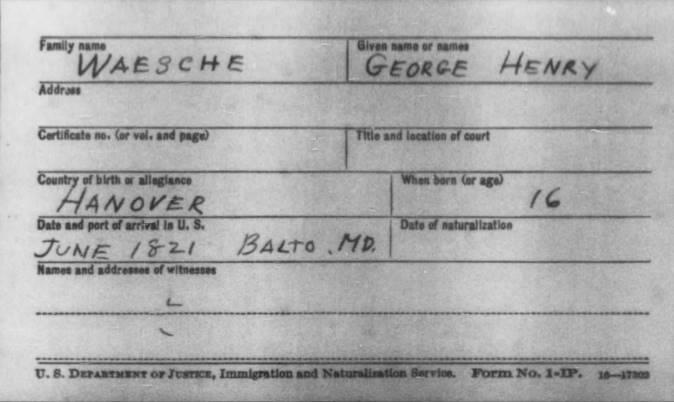 Family name Given name or names
WAESCHE GEORGE HENRY
Address
Certificate no. (or vol. and page) Title and location of court
Country of birth or allegiance When born (or age)
HANOVER 16
Date and port of arrival in U. S. Date of naturalization
JUNE 1821 BALTO. MD.
Names and addresses of witnesses
U. S. DEPARTMENT OF JUSTICE, Immigration and Naturalization Service. Form No. 1-IP. 16—17302